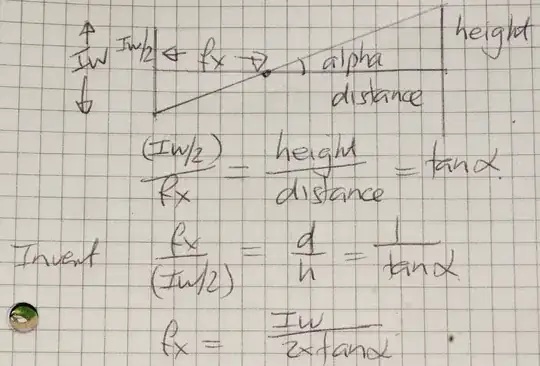 height
Iw Iw/2 fx alpha
distance
(Iw/2)/fx = height/distance = tanα
Invert fx/(Iw/2) = d/h = 1/tanα
fx = Iw/2xtanα